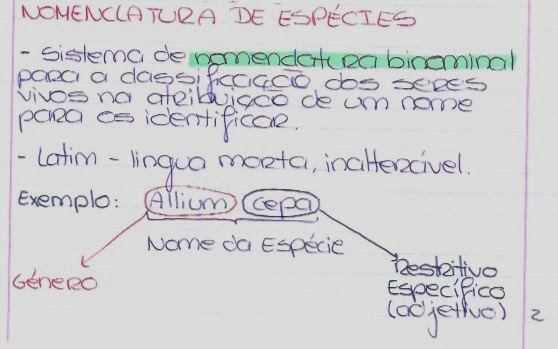 NOMENCLATURA DE ESPÉCIES
- Sistema de nomenclatura binominal
para a classificação dos seres
vivos na atribuição de um nome
para os identificar.
- Latim - lingua morta, inalterável.
Exemplo: Allium cepa
Nome da Espécie
Género
Restritivo
Específico
(adjetivo)
2